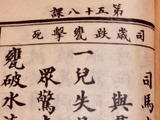 第五十八課
司歲跌甕擊死
司馬
與
一兒失
眾驚
甕破水